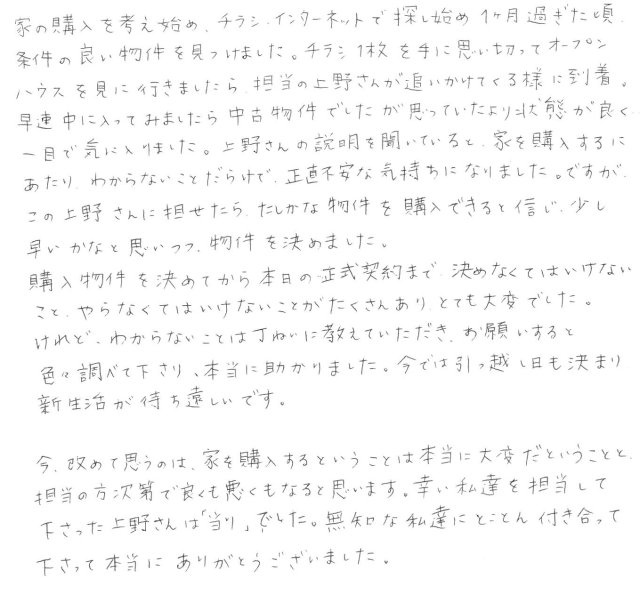 家の購入を考え始め、チラシ・インターネットで探し始め1ヶ月過ぎた頃、
条件の良い物件を見つけました。チラシ1枚を手に思い切ってオープン
ハウスを見に行きましたら、担当の上野さんが追いかけてくる様に到着。
早速中に入ってみましたら中古物件でしたが思っていたより状態が良く、
一目で気に入りました。上野さんの説明を聞いていると、家を購入するに
あたり、わからないことだらけで、正直不安な気持ちになりました。ですが、
この上野さんに担せたら、たしかな物件を購入できると信じ、少し
早いかなと思いつつ、物件を決めました。
購入物件を決めてから本日の正式契約まで、決めなくてはいけない
こと、やらなくてはいけないことがたくさんあり、とても大変でした。
けれど、わからないことは丁ねいに教えていただき、お願いすると
色々調べて下さり、本当に助かりました。今では引っ越し日も決まり
新生活が待ち遠しいです。
今、改めて思うのは、家を購入するということは本当に大変だということと、
担当の方次第で良くも悪くもなると思います。幸い私達を担当して
下さった上野さんは「当り」でした。無知な私達にとことん付き合って
下さって本当にありがとうございました。